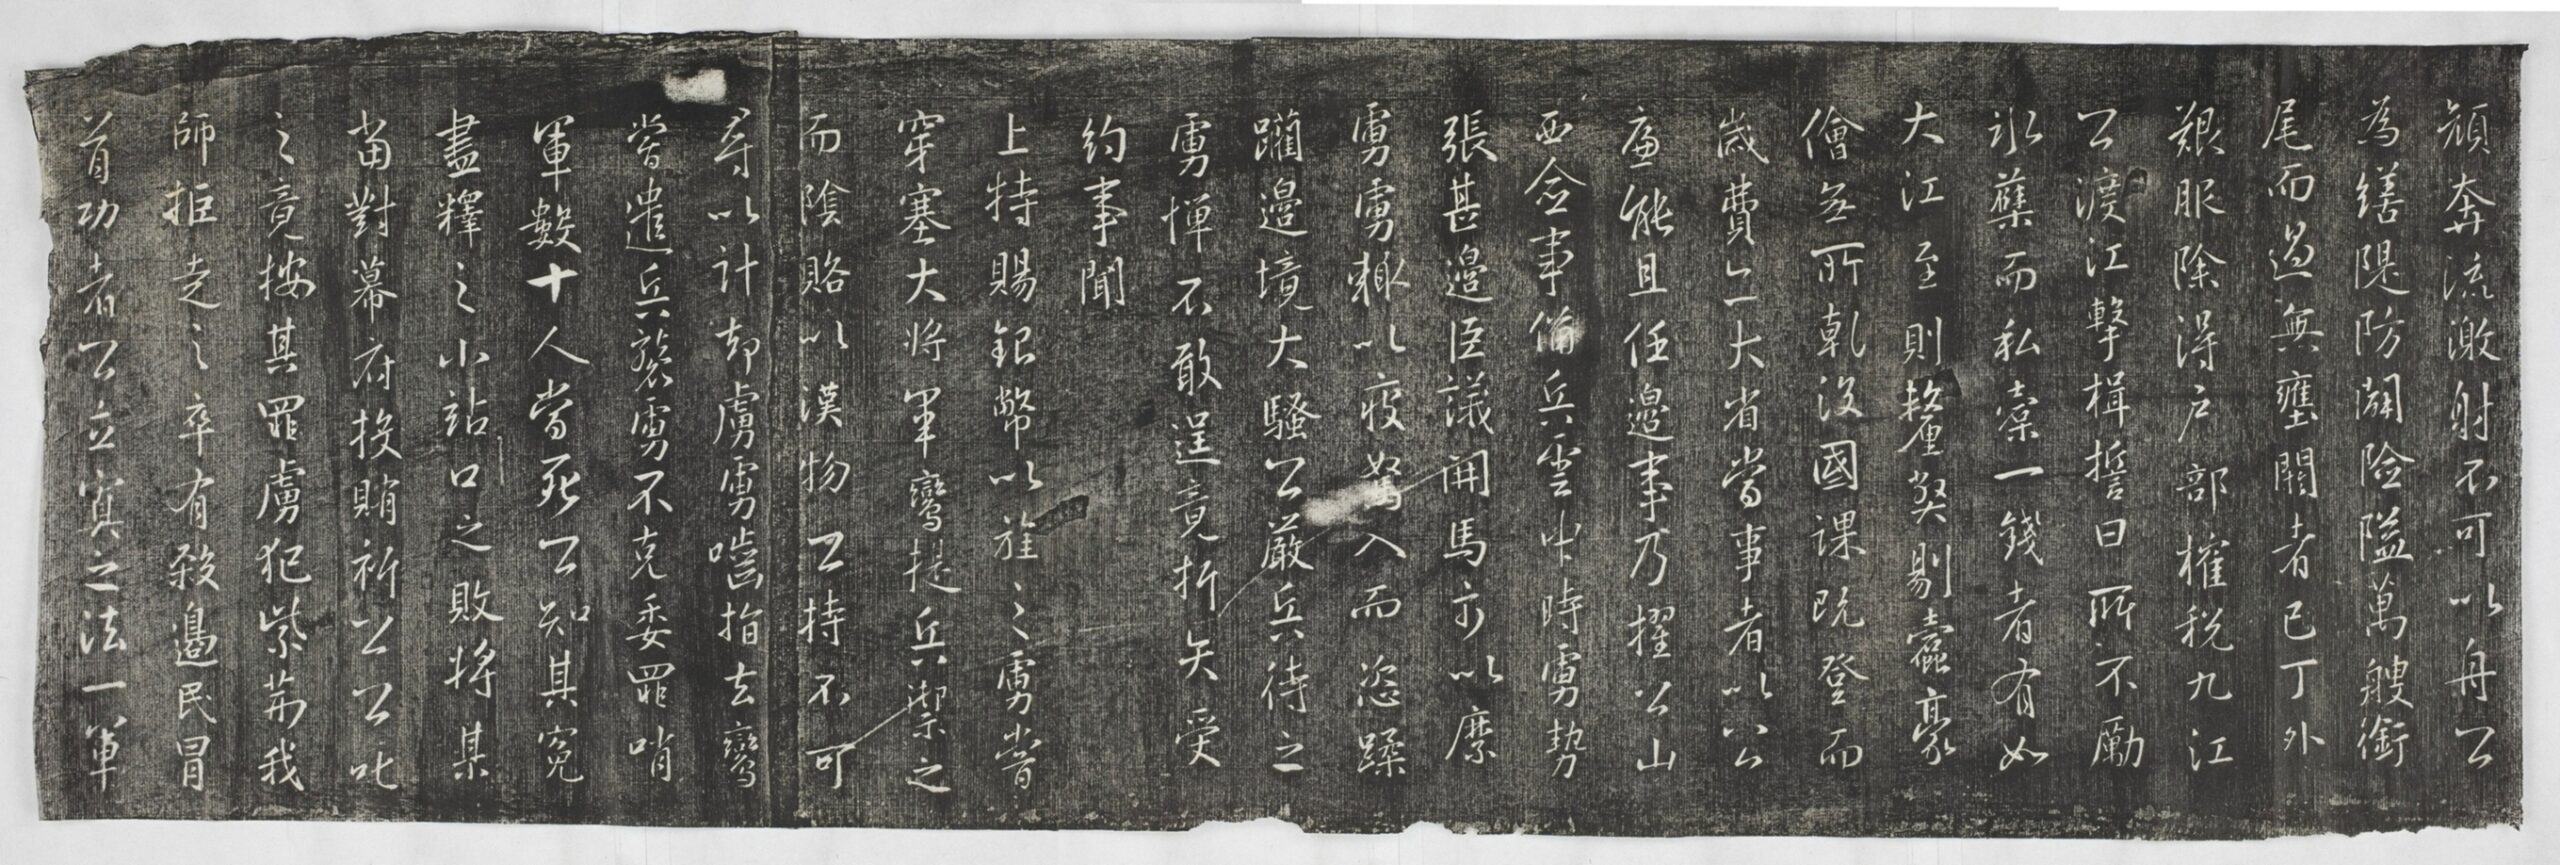 頹奔流激射不可以舟公
為繕隄防闢險隘萬艘銜
尾而過無壅閼者已丁外
艱服除得戶部榷稅九江
公渡江擊楫誓曰所不勵
冰蘗而私橐一錢者有如
大江至則釐獘剔蠹豪
儈無所乾沒國課既登而
歲費亡大省當事者以公
廉能且任邊事乃擢公山
西僉事備兵雲中時虜勢
張甚邊臣議開馬市以縻
虜虜輒以疲駑入而恣蹂
躪邊境大騷公嚴兵待之
虜憚不敢逞竟折矢受
約事聞
上特賜銀幣以旌之虜嘗
穿塞大將軍鸞提兵禦之
而陰賂以漢物公持不可
尋以計却虜虜嚙指去鸞
嘗遣兵襲虜不克委罪哨
軍數十人當死公知其冤
盡釋之小站口之敗將某
當對幕府投賄祈公公叱
之竟按其罪虜犯紫荊我
師拒走之卒有殺邊民冒
首功者公立寘之法一軍